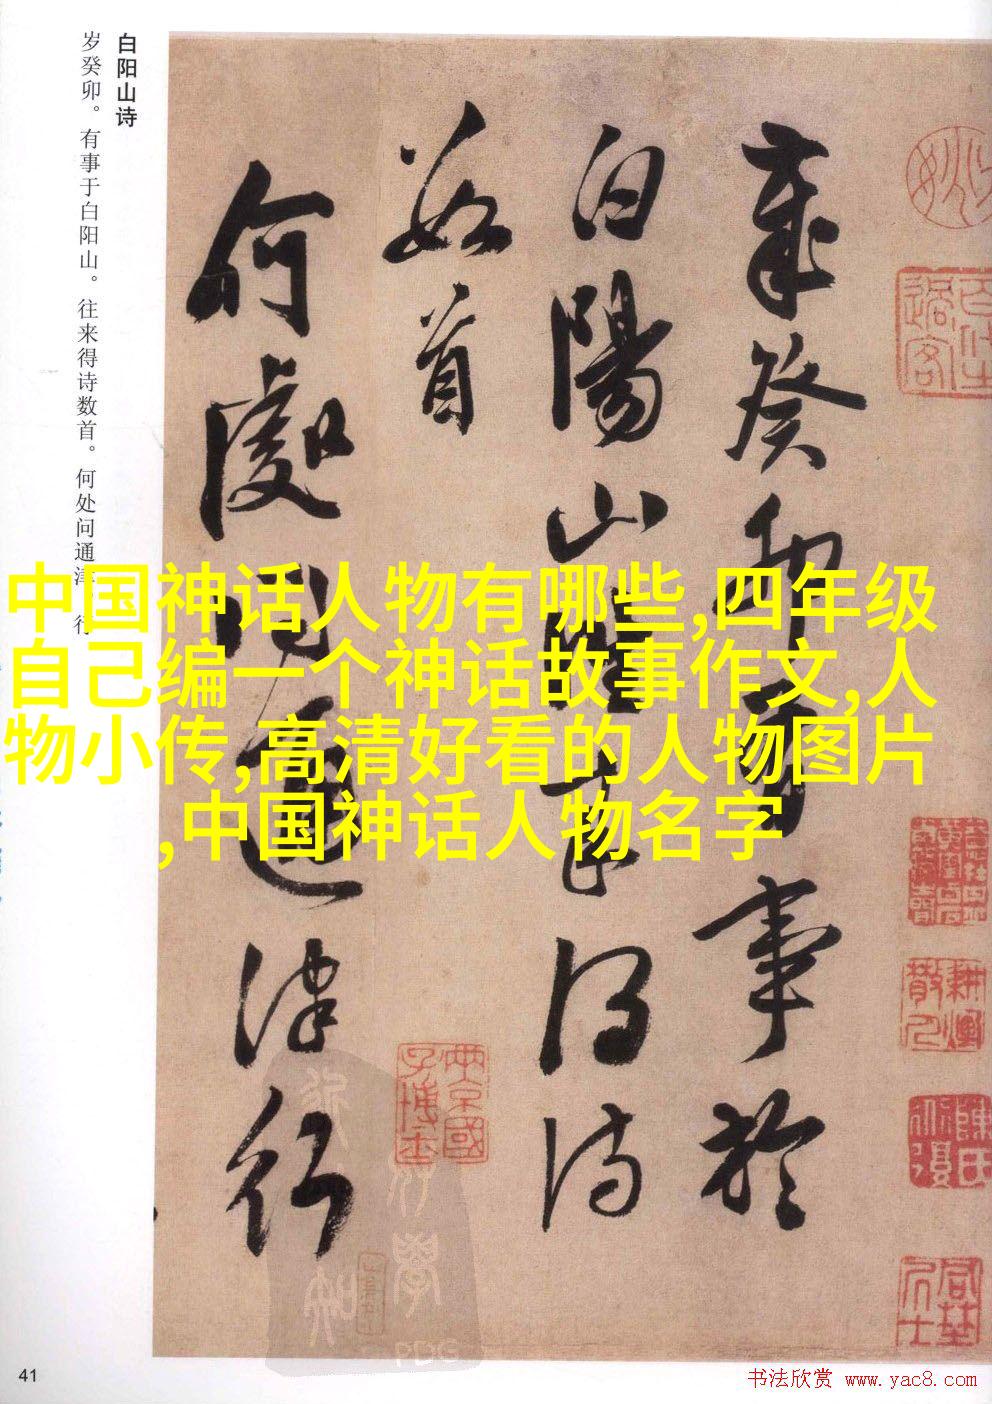 白阳山诗
岁癸卯。有事于白阳山。往来得诗数首。何处问通津。行
歲癸卯有事於
白陽山往来得诗
数首
何處问通津行
中国神话人物有哪些,四年级
自己编一个神话故事作文,人
物小传,高清好看的人物图片
,中国神话人物名字
耕煙散人
兩京國子博士
41
书法欣赏 www.yac8.com